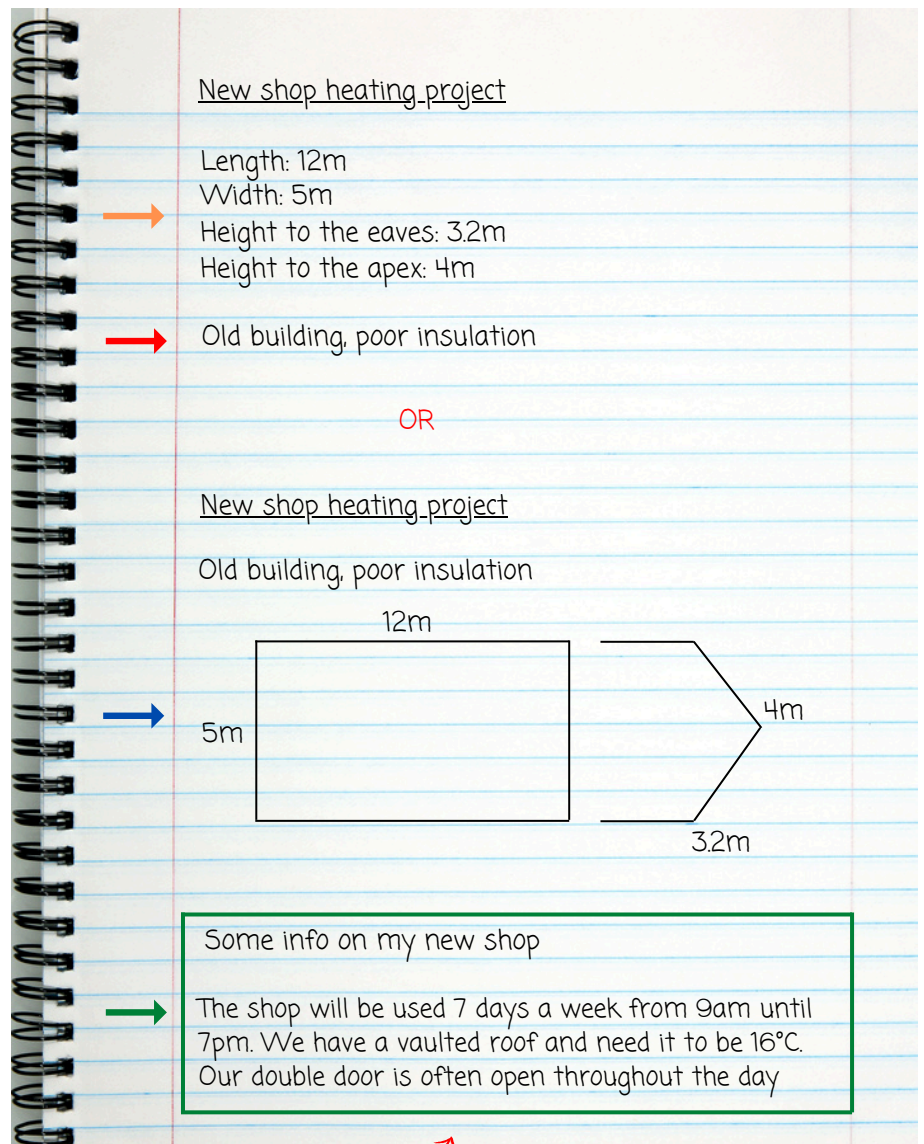 New shop heating project
Length: 12m
Width: 5m
Height to the eaves: 3.2m
Height to the apex: 4m
Old building, poor insulation
OR
New shop heating project
Old building, poor insulation
12m
5m
4m
3.2m
Some info on my new shop
The shop will be used 7 days a week from 9am until
7pm. We have a vaulted roof and need it to be 16°C.
Our double door is often open throughout the day